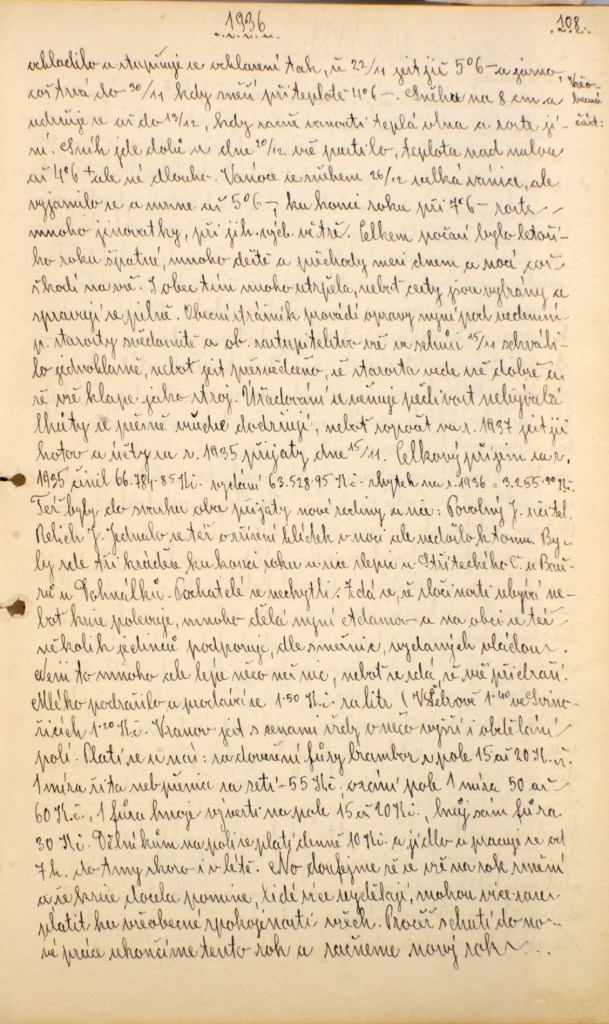 1936
108.
Všeo-
becná
část:
ochladilo a stupňuje se ochlazení tak, že 22/11 jest již 5°6- a jasno,
což trvá do 30/11 kdy sněží při teplotě 4°6-. Sněhu na 8 cm a
udržuje se až do 13/12, kdy začně vanouti teplá vlna a roste jí-
ní. Sníh jde dolů a dne 20/12 vše pustilo, teplota nad nulou
až 4°6 tale ne dlouho. Vánoce se sněhem 26/12 velká vánice, ale
vyjasnilo se a mrzne až 5°6-, ku konci roku při 7°6- roste
mnoho jinovatky, při jih. vých. větře. Celkem počasí bylo letoší-
ho roku špatné, mnoho deště a přechody mezi dnem a nocí což
škodí na vše. I obec tím mnoho utrpěla, neboť cesty jsou vybrány a
spravují se pilně. Obecní strážník provádí opravy nyní pod vedením
p. starosty svědomitě a ob. zastupitelstvo vše ve schůzi 15/11 schváli-
lo jednohlasně, neboť jest přesvědčeno, že starosta vede vše dobře a
že vše klape jako stroj. Úřadování se věnuje pečlivost nebývalá
lhůty se přesně všude dodržují, neboť rozpočet na r. 1937 jest již
hotov a účty za r. 1935 přijaty dne 15/11. Celkový příjem za r.
1935 činil 66.784.85 Kč. vydání 63.528.95 Kč. zbytek na r. 1936 = 3.255.90 Kč.
Též byly do svazku obce přijaty nové rodiny a sice: Povolný J. učitel
Relich J. Jednalo se též o zřízení hlídek v noci ale nedošlo k tomu. By-
ly zde tři krádeže ku konci roku a sice slepic u Stříteckého C. u Bou-
ru u Dohnálků. Pachatelé se nechytli. Zdá se, že zločinnosti ubývá ne-
boť krise polevuje, mnoho dělá nyní st. daroo a na obci se též
několik jedinců podporuje, dle směrnic, vydaných vládou.
Není to mnoho ale lépe něco než nic, neboť se zdá, že vše přidraží.
Mléko podražilo a prodává se 1.50 Kč. za litr (V Žďerově 1.40 ve Svino-
šicích 1.20 Kč. Vranov jest s cenami vždy o něco vyšší i obdělání
polí. Platí se u nás: za dovezení fůry brambor s pole 15 až 20 Kč.
1 míra žita neb pšenice za setí - 55 Kč. orání pole 1 míra 50 až
60 Kč., 1 fůra hnoje vyvézti na pole 15 až 20 Kč., hnůj sám fůra
30 Kč. Dělníkům na poli se platí denně 10 Kč. a jídlo a pracuje se od
7 h. do tmy skoro i v létě. No doufejme že se vše na rok změní
a že krise docela pomine, lidé více vydělají, mohou více zase
platit ku všeobecné spokojenosti všech. Pročež s chutí do no-
vé práce ukončíme tento rok a začneme nový rok...